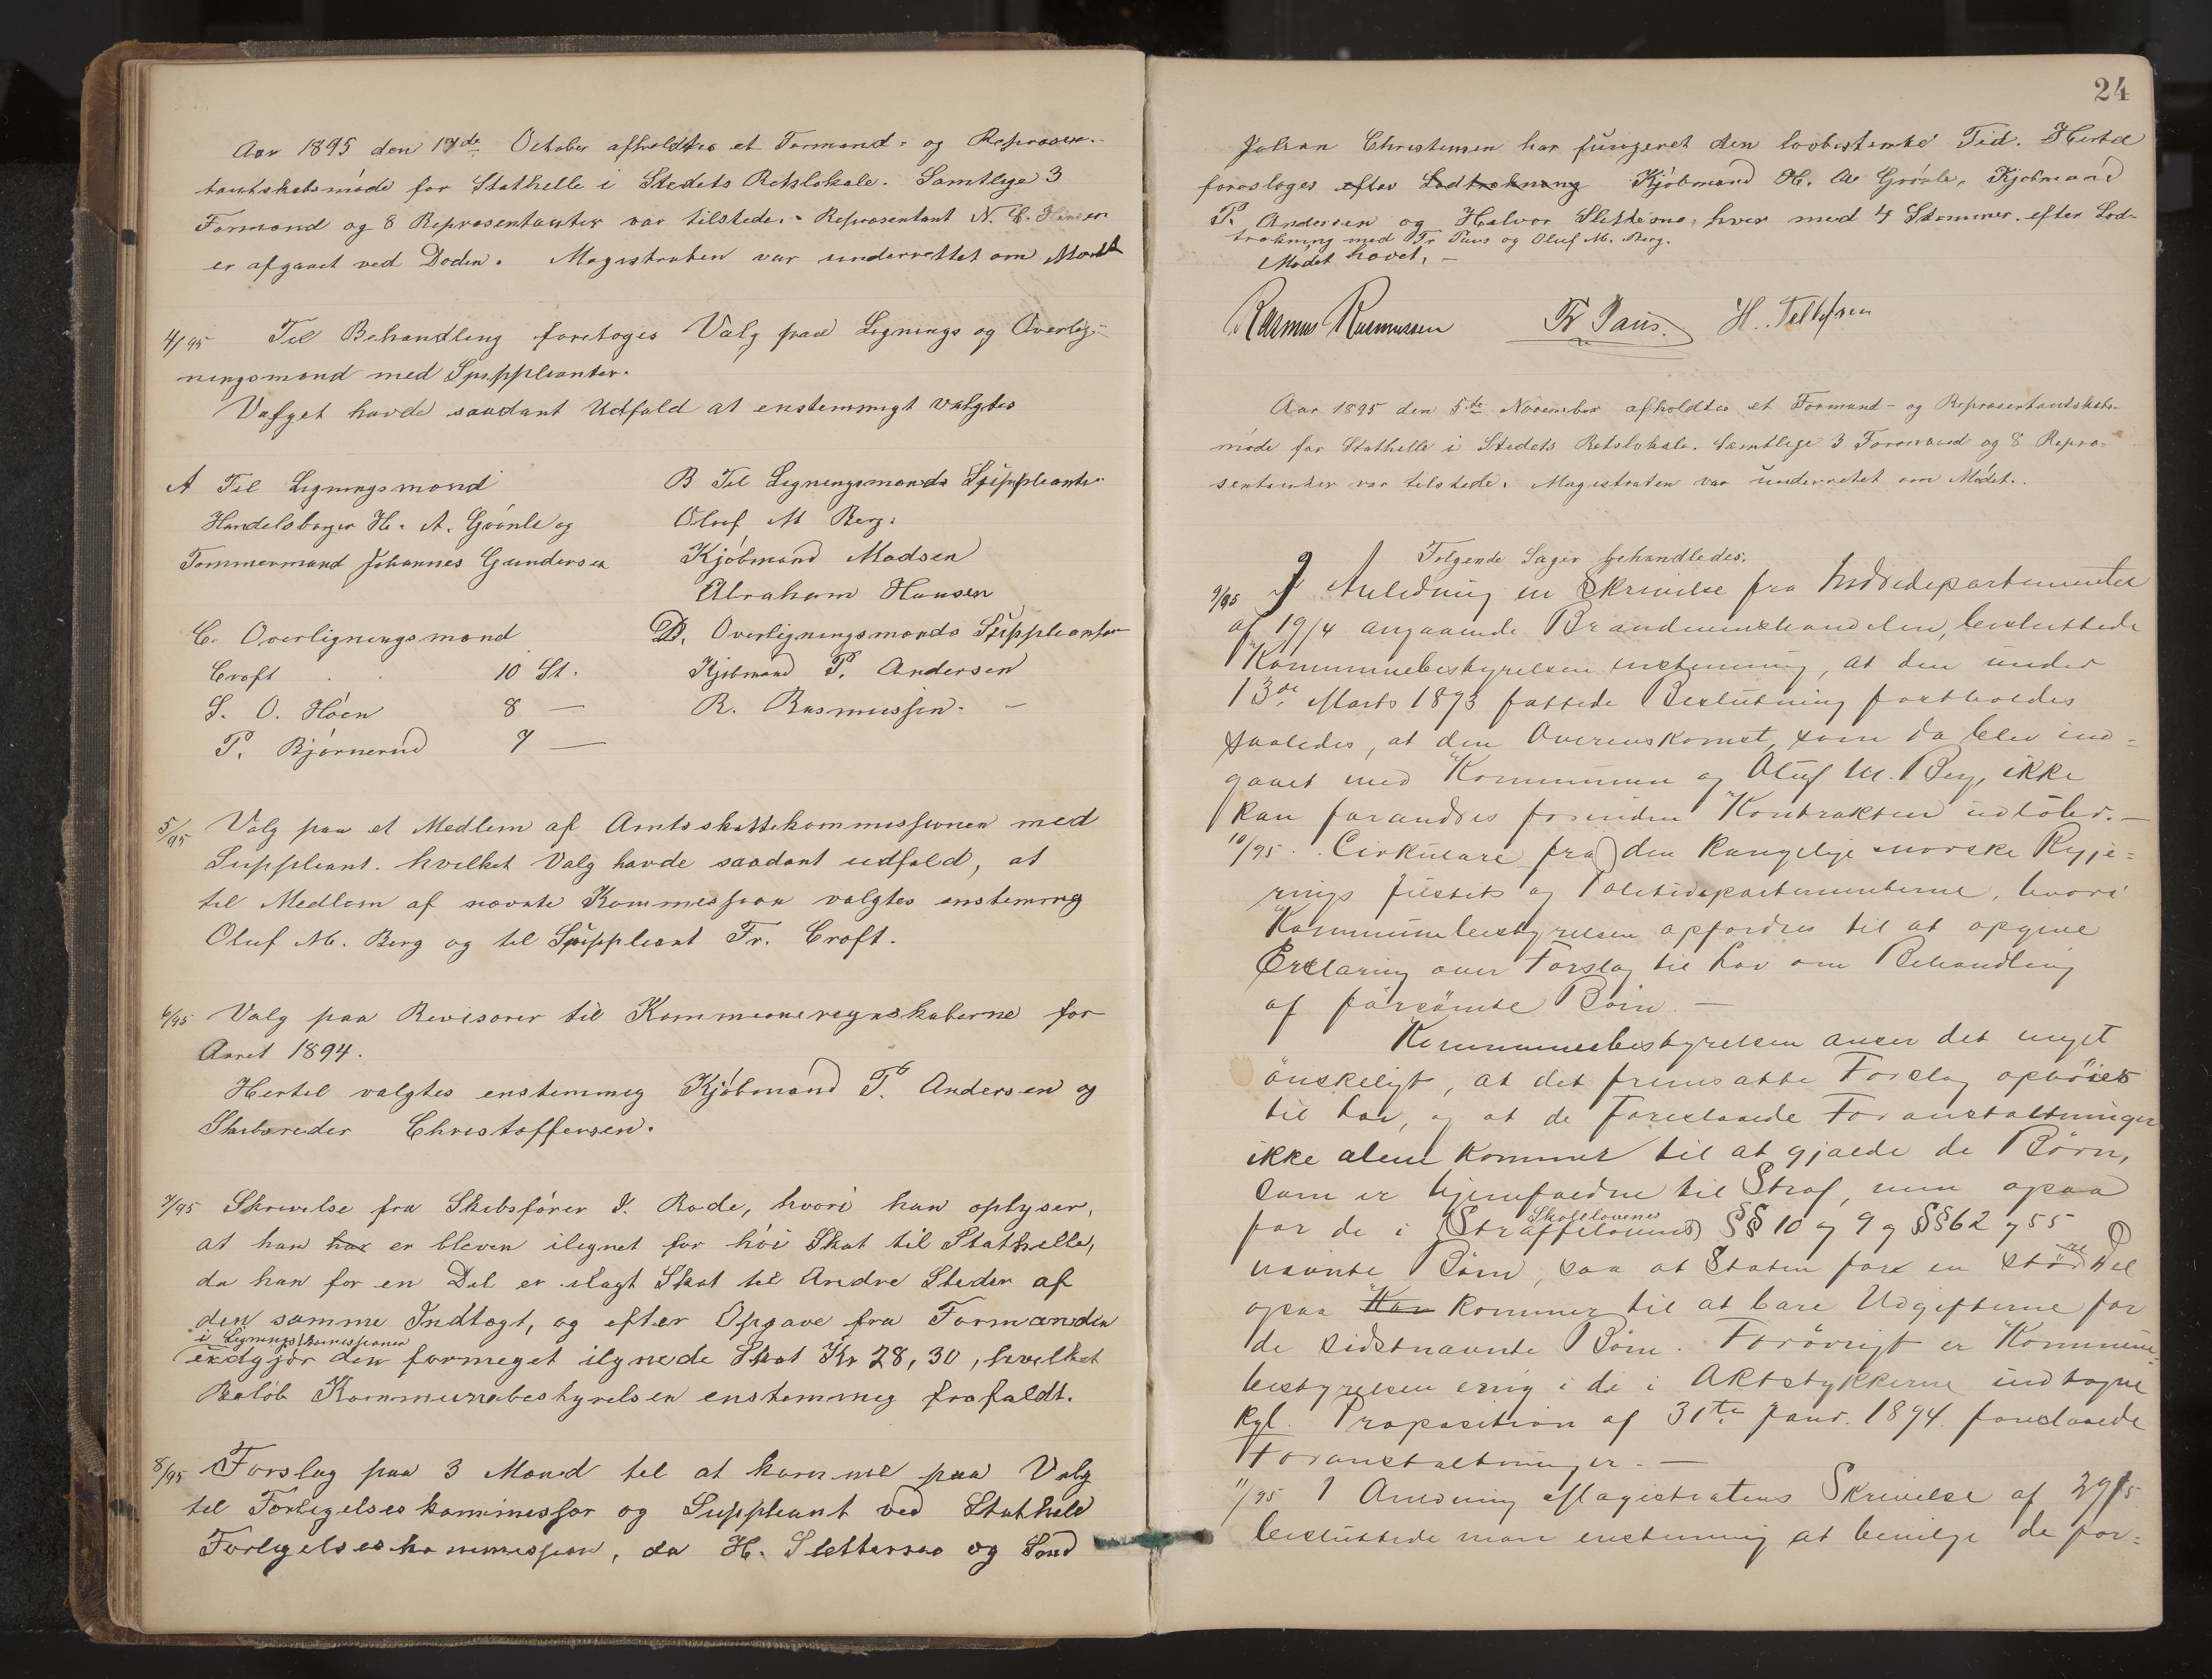 Aar 1895 den 17de October afholdtes et Formand- og Repræsen-
tantskabsmöde for Stathelle i Stedets Retslokale. Samtlige 3
Formænd og 8 Repræsentanter var tilstede. Repræsentant N. C. Hansen
er afgaaet ved Döden. Magistraten var underrettet om Mödet
4/95 Til Behandling foretoges Valg paa Lignings og Overlig-
ningsmænd med Suppleanter.
Valget havde saadant Udfald at enstemmigt valgtes
A Til Ligningsmænd
Handelsborger H. A. Grönle og
Tömmermand Johannes Gundersen
B Til Ligningsmænds Suppleanter
Oluf M Berg.
Kjöbmand Madsen
Abraham Hansen
C. Overligningsmænd
Croft 10 St.
S. O. Höen 8 —
P. Bjørnerud 7 —
D. Overligningsmænds Suppleanter
Kjöbmand P. Andersen
R. Rasmussen. —
5/95 Valg paa et Medlem af Amtsskattekommissionen med
Suppleant. hvilket Valg havde saadant udfald, at
til Medlem af nævnte Kommission valgtes enstemmig
Oluf M. Berg og til Suppleant Fr. Croft.
6/95 Valg paa Revisorer til Kommuneregnskaberne for
Aaret 1894.
Hertil valgtes enstemmig Kjöbmand P. Andersen og
Skibsreder Christoffersen.
7/95 Skrivelse fra Skibsförer I. Rode, hvori han oplyser,
at han har er bleven ilignet for höi Skat til Stathelle,
da han for en Del er ilagt Skat til Andre Steder af
den samme Indtægt, og efter Opgave fra Formanden
i Ligningskommissionen
udgjör den formeget ilignede Skat Kr 28,30, hvilket
Belöb Kommunebestyrelsen enstemmig frafaldt.
8/95 Forslag paa 3 Mænd til at komme paa Valg
til Forligelseskommissær og Suppleant ved Stathelle
Forligelseskommission, da H. Slettesnæs og Send
24
Johan Christensen har fungeret den lovbestemte Tid. Hertil
foresloges efter Lodtrækning Kjöbmand H. A. Grönle, Kjöbmand
P. Andersen og Halvor Slettesnæs hver med 4 Stemmer. efter Lod-
trækning med Fr Paus og Oluf M. Berg.
Mödet hævet. —
Rasmus Rasmussen Fr Paus. H. Tellefsen
Aar 1895 den 5te November afholdtes et Formand- og Repræsentantskabs-
möde for Stathelle i Stedets Retslokale. Samtlige 3 Formænd og 8 Repræ-
sentanter var tilstede. Magistraten var underrettet om Mödet.
Fölgende Sager behandledes.
9/95 I Anledning en Skrivelse fra Indredepartementet
af 19/4 angaaende Brændevinshandelen, besluttede
Kommunebestyrelsen enstemmig, at den under
13de Marts 1893 fattede Beslutning fastholdes
saaledes, at den Overenskomst, som da blev ind-
gaaet med Kommunen og Oluf M. Berg, ikke
kan forandres forinden Kontrakten udlöber. —
10/95. Cirkulære fra den kongelige norske Regje-
rings Justits og Politidepartementerne, hvori
Kommunebestyrelsen opfordres til at opgive
Erklæring over Forslag til Lov om Behandling
af forsömte Börn. —
Kommunebestyrelsen anser det meget
önskeligt, at det fremsatte Forslag ophöies
til Lov, og at de foreslaaede Foranstaltninger
ikke alene kommer til at gjælde de Börn,
som er hjemfaldne til Straf, men ogsaa
for de i (Straffelovens) Skolelovenes §§ 10 og 9 og §§ 62 og 55
nævnte Börn, saa at Staten for en större Del
ogsaa kan kommer til at bære Udgifterne for
de sidstnævnte Börn. Forövrigt er Kommune-
bestyrelsen enig i de i Aktstykkerne indtagne
kgl. Proposition af 31te Janr. 1894. foreslaaede
Foranstaltninger. —
11/95 I Anledning Magistratens Skrivelse af 29/5
besluttede man enstemmig at bevilge de for-